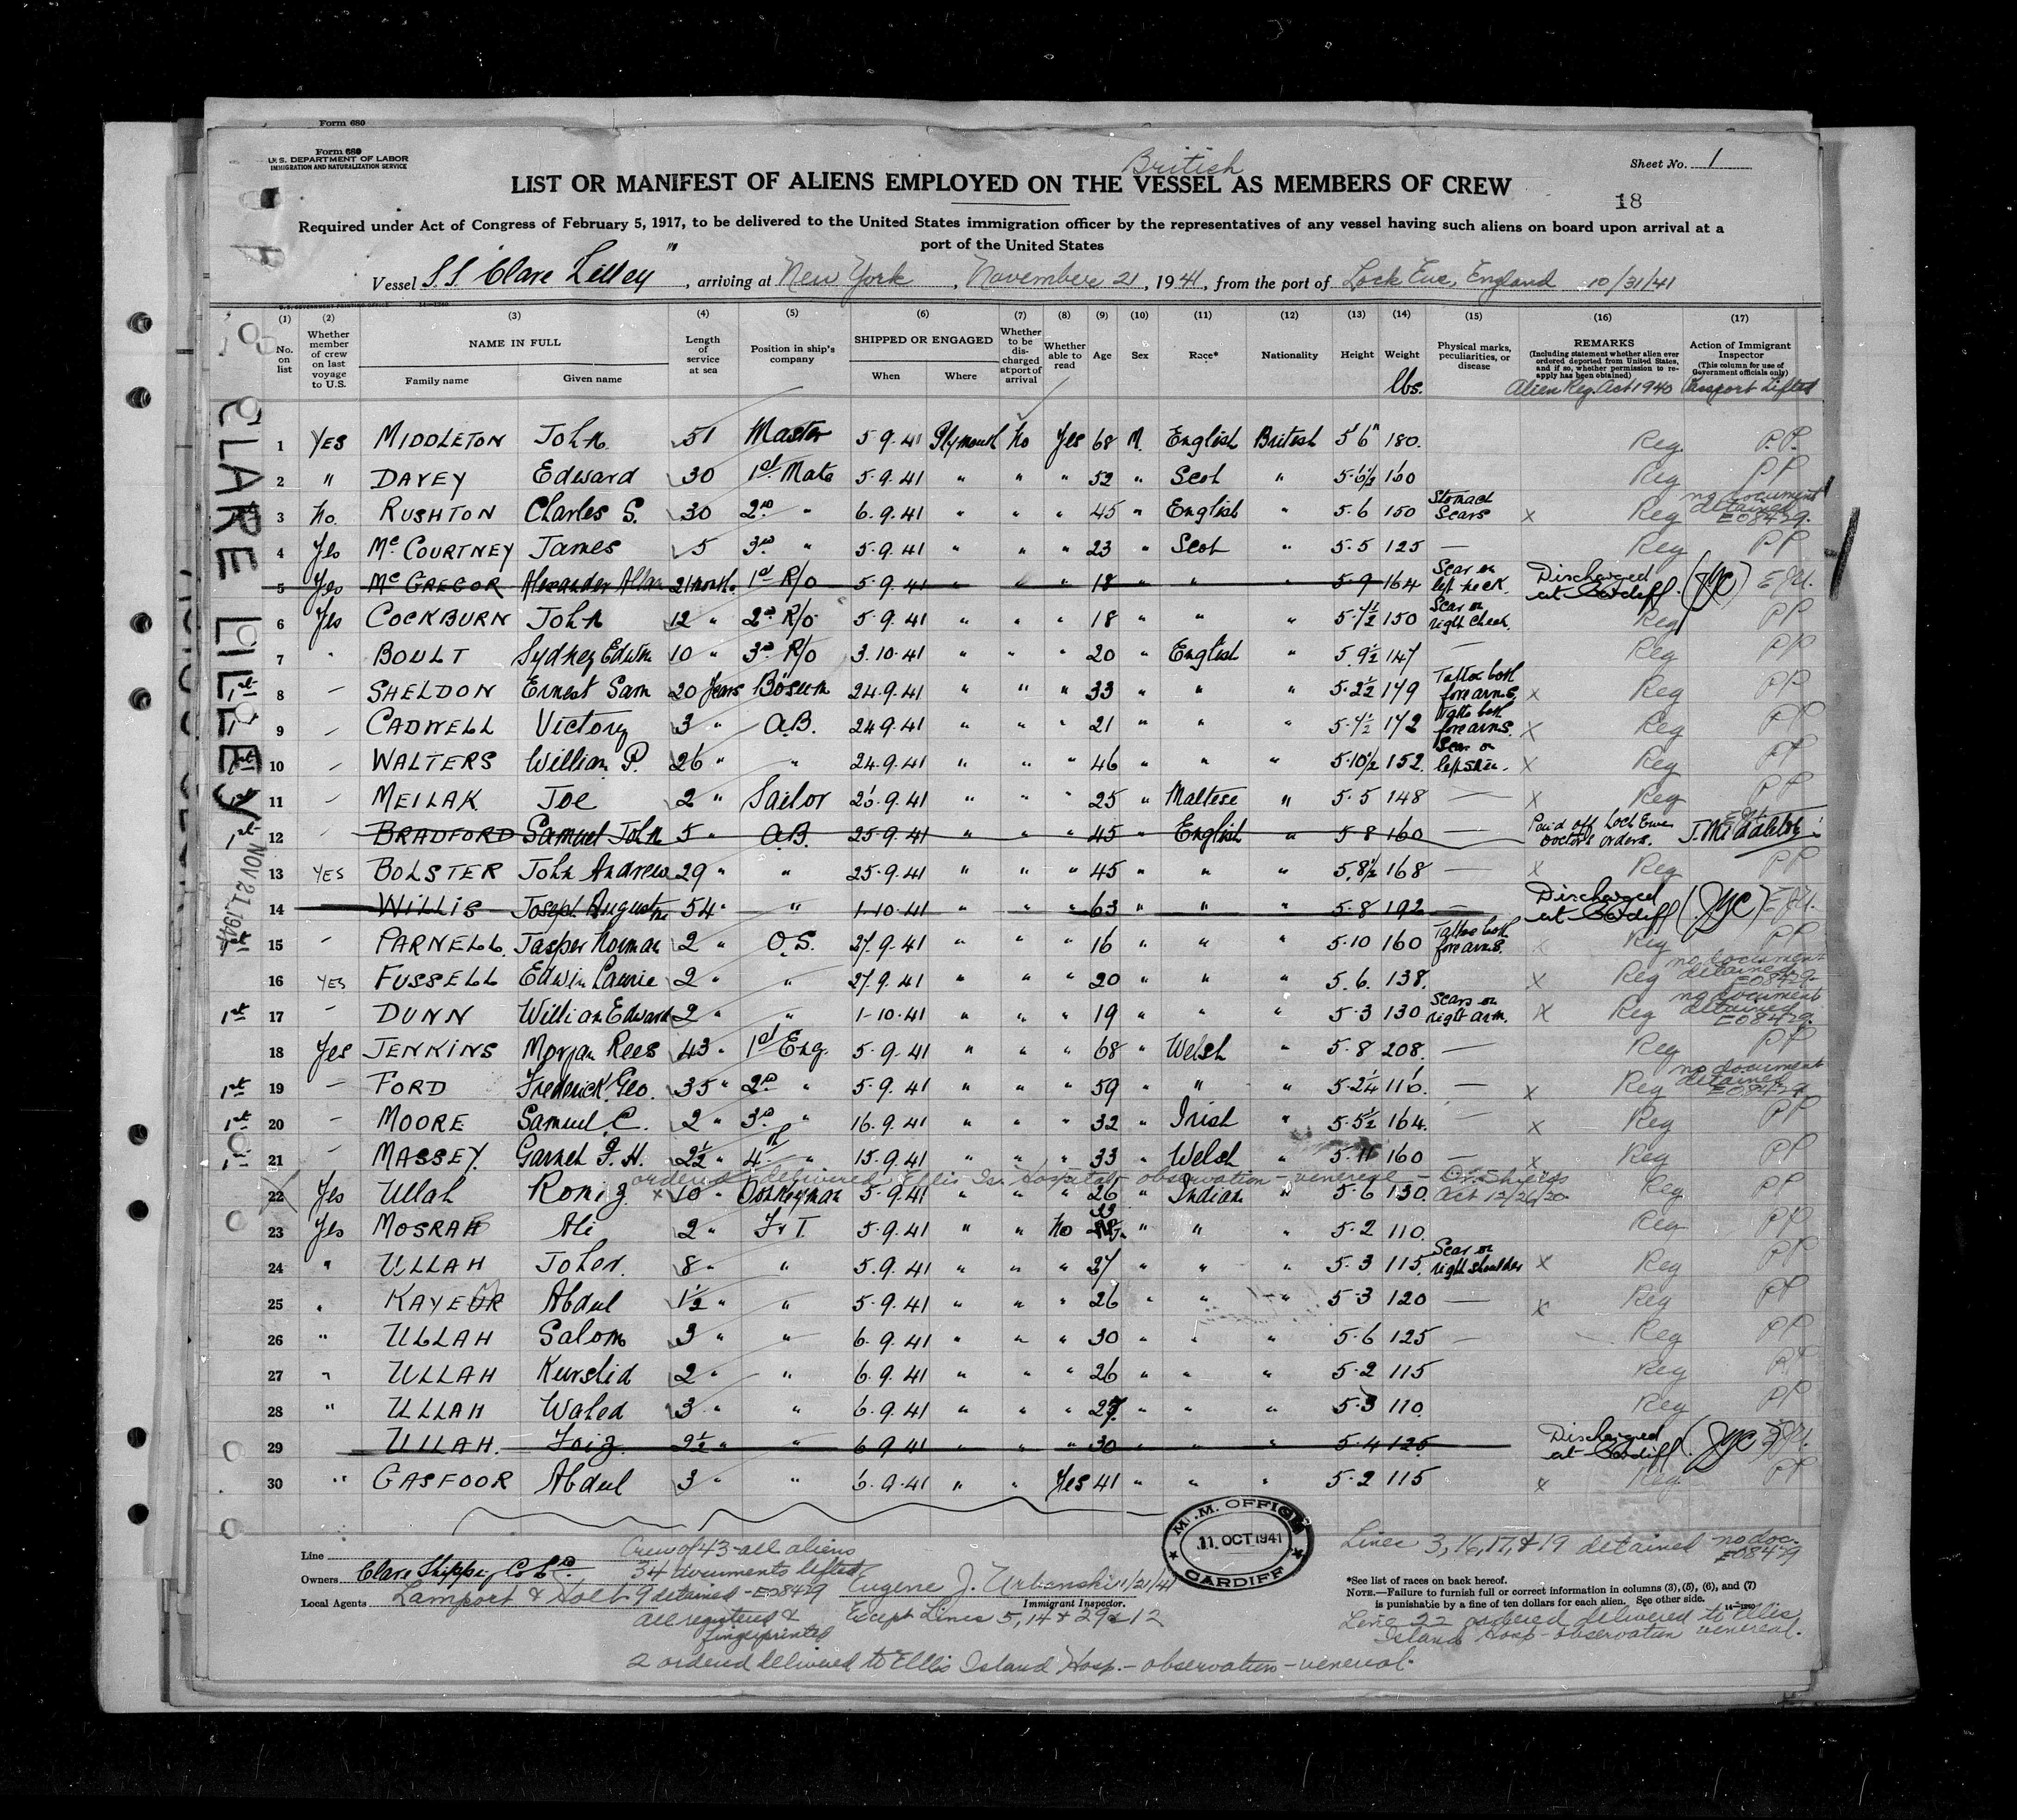 Form 680
Form 680
U. S. DEPARTMENT OF LABOR
IMMIGRATION AND NATURALIZATION SERVICE
Sheet No. 1
18
British
LIST OR MANIFEST OF ALIENS EMPLOYED ON THE VESSEL AS MEMBERS OF CREW
Required under Act of Congress of February 5, 1917, to be delivered to the United States immigration officer by the representatives of any vessel having such aliens on board upon arrival at a
port of the United States
Vessel S.S. "Clare Lilley", arriving at New York, November 21, 1941, from the port of Lock Ewe, England 10/31/41
(1) (2) (3) (4) (5) (6) (7) (8) (9) (10) (11) (12) (13) (14) (15) (16) (17)
No. on list
Whether member of crew on last voyage to U.S.
NAME IN FULL
Family name Given name
Length of service at sea
Position in ship's company
SHIPPED OR ENGAGED
When Where
Whether to be discharged at port of arrival
Whether able to read
Age
Sex
Race*
Nationality
Height
Weight
lbs.
Physical marks, peculiarities, or disease
REMARKS
(Including statement whether alien ever ordered deported from United States, and if so, whether permission to reapply has been obtained)
Alien Reg. Act 1940
Action of Immigrant Inspector
(This column for use of Government officials only)
Passport Lifted
CLARE LILLEY
NOV 21 1941
1 YES MIDDLETON John 51 Master 5.9.41 Plymouth No Yes 68 M. English British 5'6" 180. Reg P.P.
2 " DAVEY Edward 30 1st Mate 5.9.41 " " " 52 " Scot " 5-6½ 160 Reg PP
3 No. RUSHTON Charles S. 30 2nd " 6.9.41 " " " 45 " English " 5.6 150 Stomach Scars x Reg no document detained E08429
4 Yes McCOURTNEY James 5 3rd " 5.9.41 " " " 23 " Scot " 5.5 125 — Reg PP
5 Yes McGREGOR Alexander Allan 21 months 1st R/o 5.9.41 " " 18 " " " 5-9 164 Scar on left neck. Discharged at Cardiff. (JYC) EJU.
6 Yes COCKBURN John 12 " 2nd R/o 5.9.41 " " " 18 " " " 5-7½ 150 Scar on right cheek. Reg PP
7 " BOULT Sydney Edwin 10 " 3rd R/o 3.10.41 " " " 20 " English " 5.9½ 147 — Reg PP
8 – SHELDON Ernest Sam 20 Years Bosum 24.9.41 " " " 33 " " " 5-2½ 179 Tattoo both forearms x Reg PP
9 – CADWELL Victory 3 " A.B. 24.9.41 " " " 21 " " " 5-7½ 172 Tatto both forearms. x Reg PP
10 – WALTERS William P. 26 " " 24.9.41 " " " 46 " " " 5-10½ 152. Scar on left shin. x Reg PP
11 – MEILAK Joe 2 " Sailor 26.9.41 " " " 25 " Maltese " 5.5 148 — x Reg PP
12 – BRADFORD Samuel John 5 " A.B. 25.9.41 " " " 45 " English " 5-8 160 — Paid off Loch Ewe Doctor's orders. J. Middleton
13 YES BOLSTER John Andrew 29 " " 25.9.41 " " " 45 " " " 5.8½ 168 — x Reg PP
14 WILLIS Joseph Augustine 54 " " 1-10-41 " " " 63 " " " 5-8 192 — Discharged at Cardiff (JYC) EJU.
15 – PARNELL. Jasper Norman 2 " O.S. 27.9.41 " " " 16 " " " 5-10 160 Tattoo both forearms. x Reg PP
16 YES FUSSELL Edwin Laurie 2 " " 27.9.41 " " " 20 " " " 5.6. 138. x Reg no document detained E08429
1st 17 – DUNN William Edward 2 " " 1-10.41 " " " 19 " " " 5-3 130 Scars on right arm. x Reg no document detained E08429
18 Yes JENKINS Morgan Rees 43 " 1st Eng. 5.9.41 " " " 68 " Welsh " 5-8 208. — Reg PP
1st 19 – FORD Frederick Geo. 35 " 2nd " 5.9.41 " " " 59 " " " 5-2¼ 116. — x Reg no document detained E08429
1st 20 – MOORE Samuel C. 2 " 3rd " 16.9.41 " " " 32 " Irish " 5-5½ 164. — x Reg PP
1st 21 – MASSEY. Garnet J. H. 2½ " 4th " 15.9.41 " " " 33 " Welsh " 5-11 160 — x Reg PP
ordered delivered Ellis Is. Hospital - observation - venereal - Dr. Shields Act 12/26/20
22 Yes Ullah Roniz x 10 " Donkeyman 5-9.41 " " " 26 " Indian " 5-6 130. Reg PP
23 Yes MOSRAB Ali 2 " F & T. 5.9.41 " " No 33 " " " 5-2 110. Reg PP
24 " ULLAH Joher. 8 " " 5.9.41 " " " 27 " " " 5.3 115 Scar on right shoulder x Reg PP
25 " KAYEUR Abdul 1½ " " 5.9.41 " " " 26 " " " 5-3 120 — x Reg PP
26 " ULLAH Salom 3 " " 6.9.41 " " " 30 " " " 5-6 125 — Reg PP
27 " ULLAH Kurshid 2 " " 6.9.41 " " " 26 " " " 5-2 115 Reg PP
28 " ULLAH Waled 3 " " 6.9.41 " " " 27 " " " 5-3 110. Reg PP
29 ULLAH. Foiz 2½ " " 6 9 41 " " " 30 " " " 5-4 125 Discharged at Cardiff. (JYC) EJU.
30 " GASFOOR Abdul 3 " " 6.9.41 " " Yes 41 " " " 5-2 115 x Reg PP
M.M. OFFICE
11 OCT 1941
CARDIFF
Line
Owners Clare Shippg Co Ld.
Local Agents Lamport & Holt
Crew of 43 - all aliens
34 documents lifted
9 detained - E08429
all registered &
fingerprinted
Eugene J. Urbanski 11/21/41
Immigrant Inspector.
Except Lines 5, 14 & 29 & 12
2 ordered delivered to Ellis Island Hosp. - observation - venereal.
Lines 3, 16, 17, & 19 detained no doc. E08429
*See list of races on back hereof.
NOTE.—Failure to furnish full or correct information in columns (3), (5), (6), and (7)
is punishable by a fine of ten dollars for each alien. See other side.
14—1240
Line 22 ordered delivered to Ellis
Island Hosp - observation venereal.